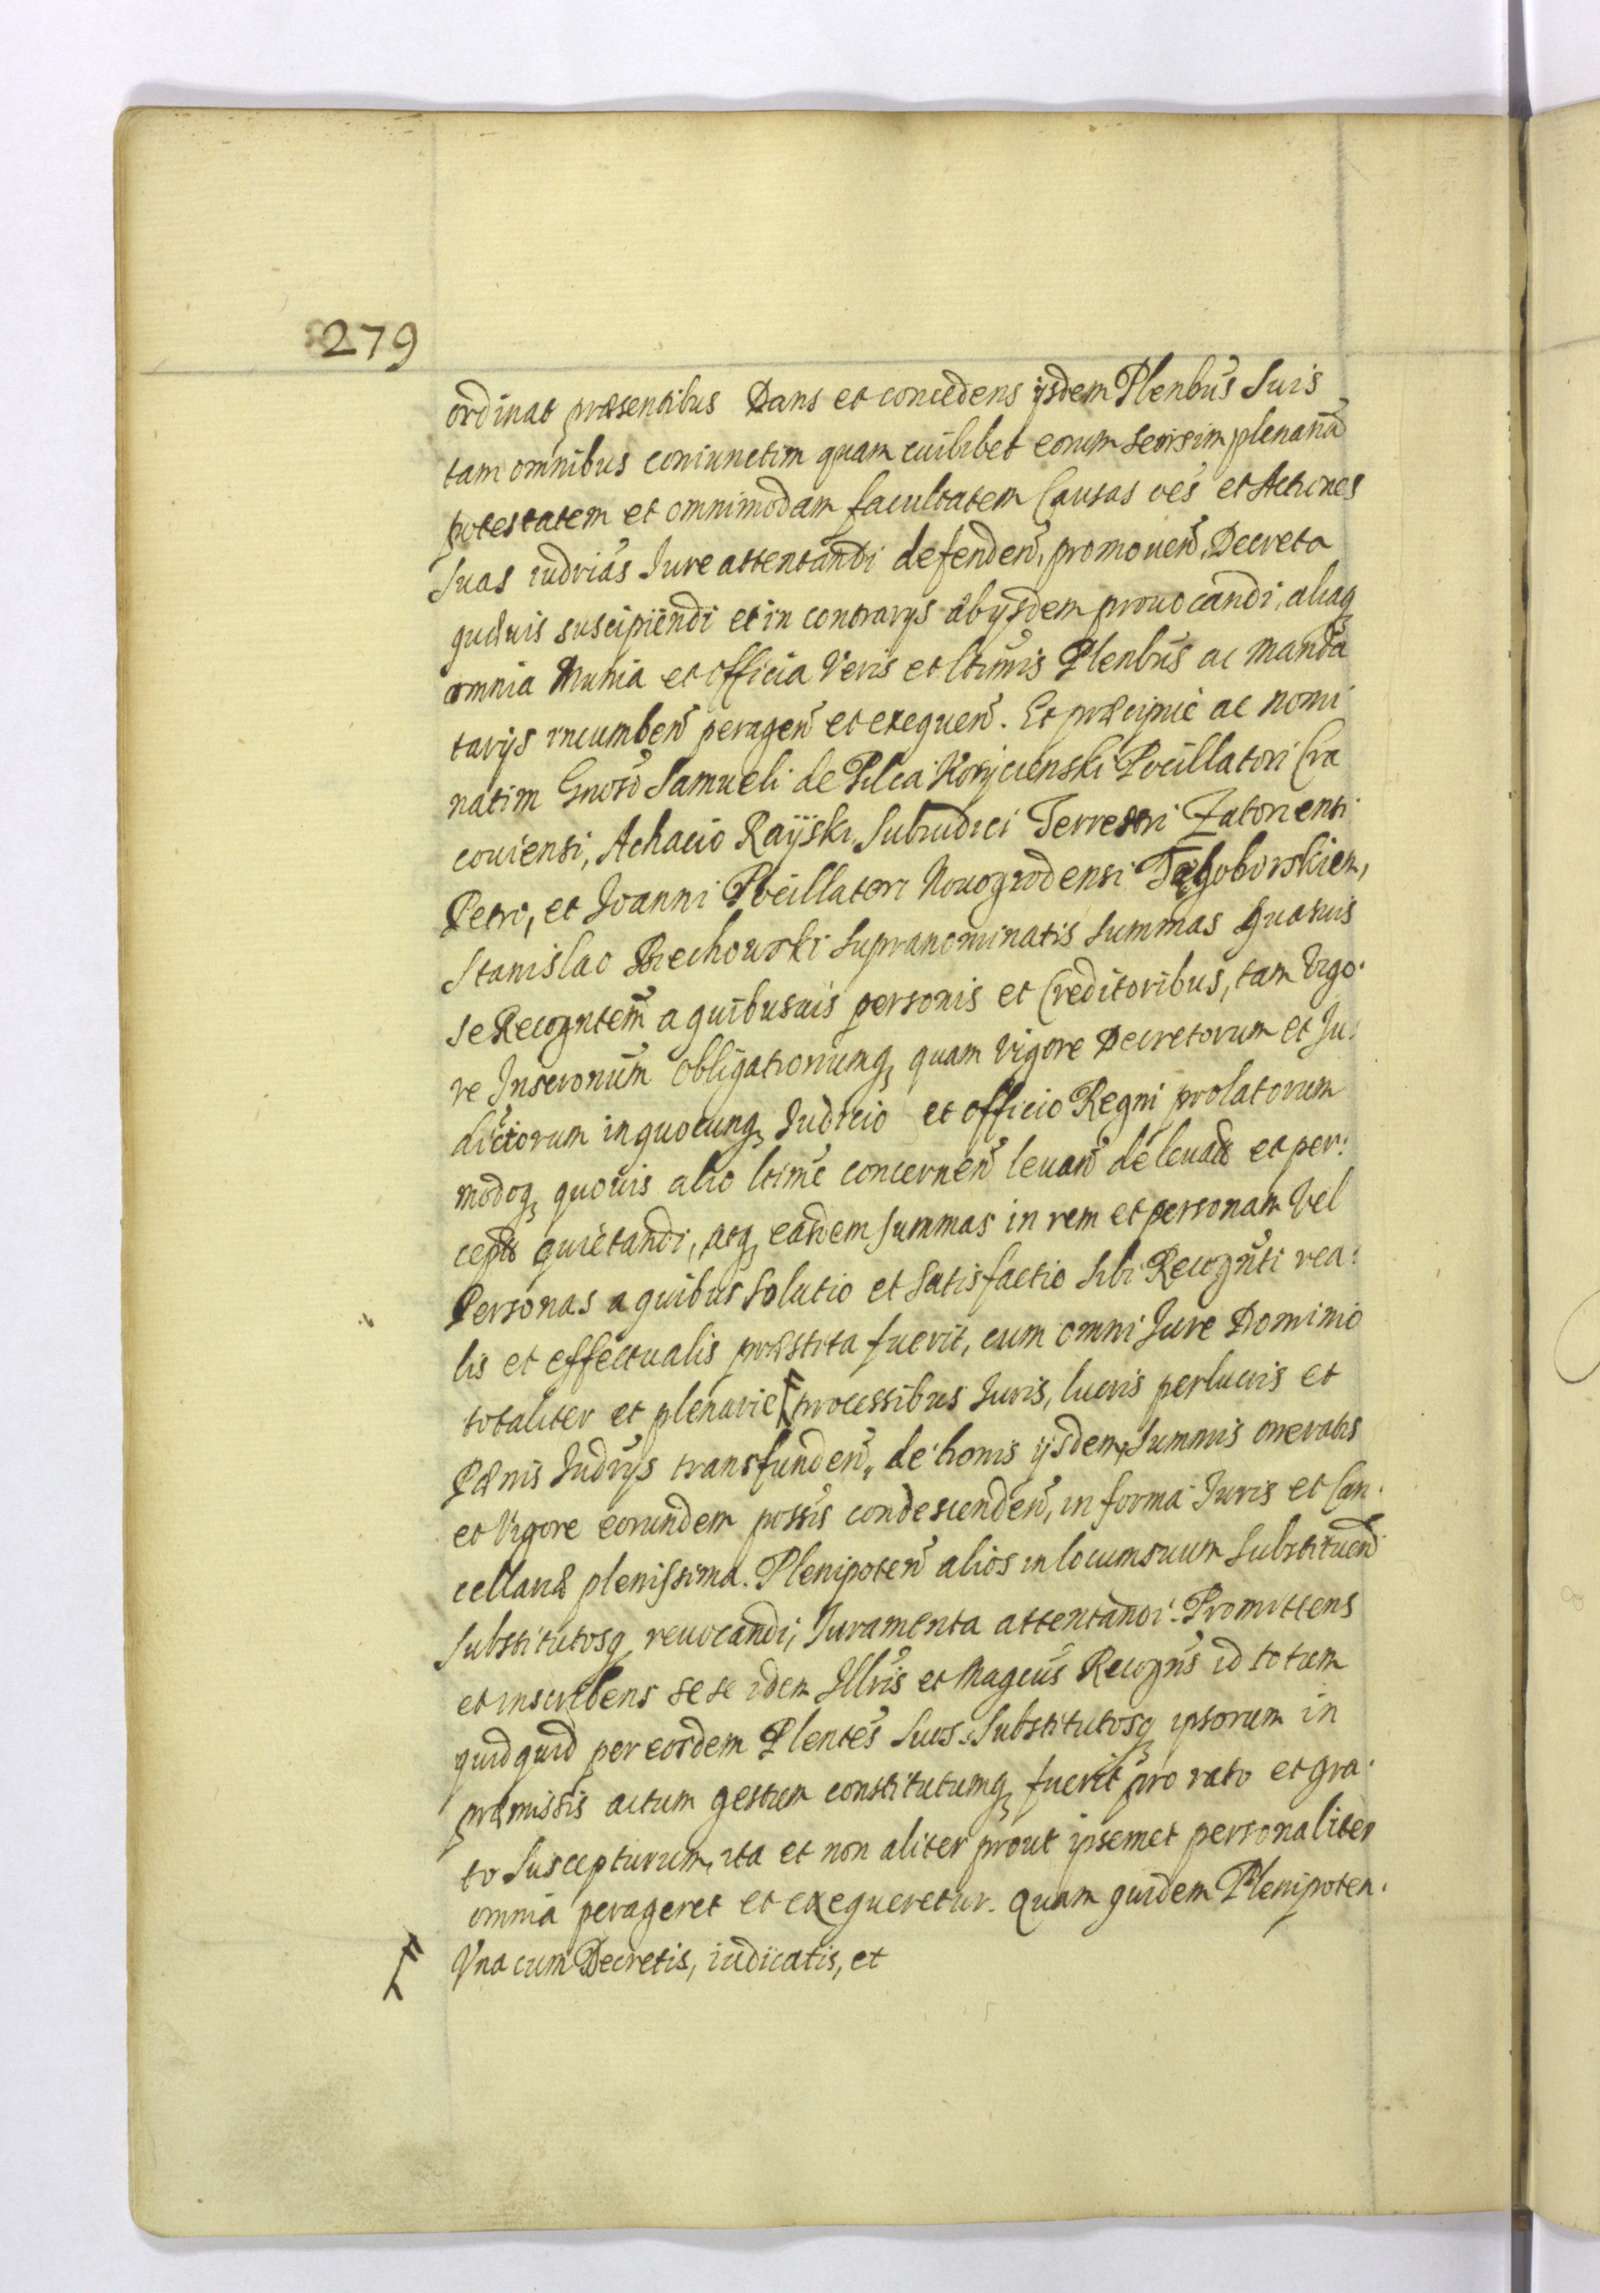 279
ordinat præsentibus Dans et concedens ijsdem Plenbus Suis
tam omnibus coniunctim quam cuilibet eorum seorsim plenariã
potestatem et omnimodam facultatem Causas oẽs et Actiones
Suas iudrias Jure attentandi defendeñ, promoueñ, Decreta
quæuis suscipiendi et in contrarijs ab ijsdem prouocandi, aliaq
omnia Munia et officia Veris et ltimis Plenbus ac Manda
tarijs incumbeñ perageñ et exequeñ. Et præcipue ac nomi
natim Gnoso Samueli de Pilca Korycienski Pocillatori Cra
couiensi, Achacio Rayski Subiudici Terrestri Zatoriensi
Petro, et Joanni Pocillatori Nouogrodensi Taboborskiem,
Stanislao Piechowski supranominatis summas quasuis
se Recogntem a quibusuis personis et Creditoribus, tam Vigo.
re Inscronum Obligationumq, quam vigore Decretorum et Ju.
dictorum in quocunq Judicio et officio Regni prolatorum
modoq quouis alio ltime concerneñ leuañ de leuatis et per.
ceptis quietandi, atq easdem summas in rem et personam Vel
Personas a quibus solutio et satisfactio sibi Recognti rea.
lis et effectualis præstita fuerit, cum omni Jure Dominio
totaliter et plenarie processibus Juris, lucris perlucris et
Pænis Judrijs transfundeñ, de bonis ijsdem Summis oneratis
et Vigore eorundem possis condescendeñ, in forma Juris et Can.
cellariæ plenissima. Plenipoteñ alios in locum suum Substitueñ
Substitutosq reuocandi, Juramenta attentandi. Promittens
et inscribens sese idem Illris et Magcus Recogns id totum
quidquid per eosdem Plentes Suos Substitutosq ipsorum in
præmissis actum gestum constitutumq fuerit pro rato et gra.
to Suscepturum, ita et non aliter prout ipsemet personaliter
omnia perageret et exequeretur. Quam quidem Plenipoten.
Vna cum Decretis, iudicatis, et